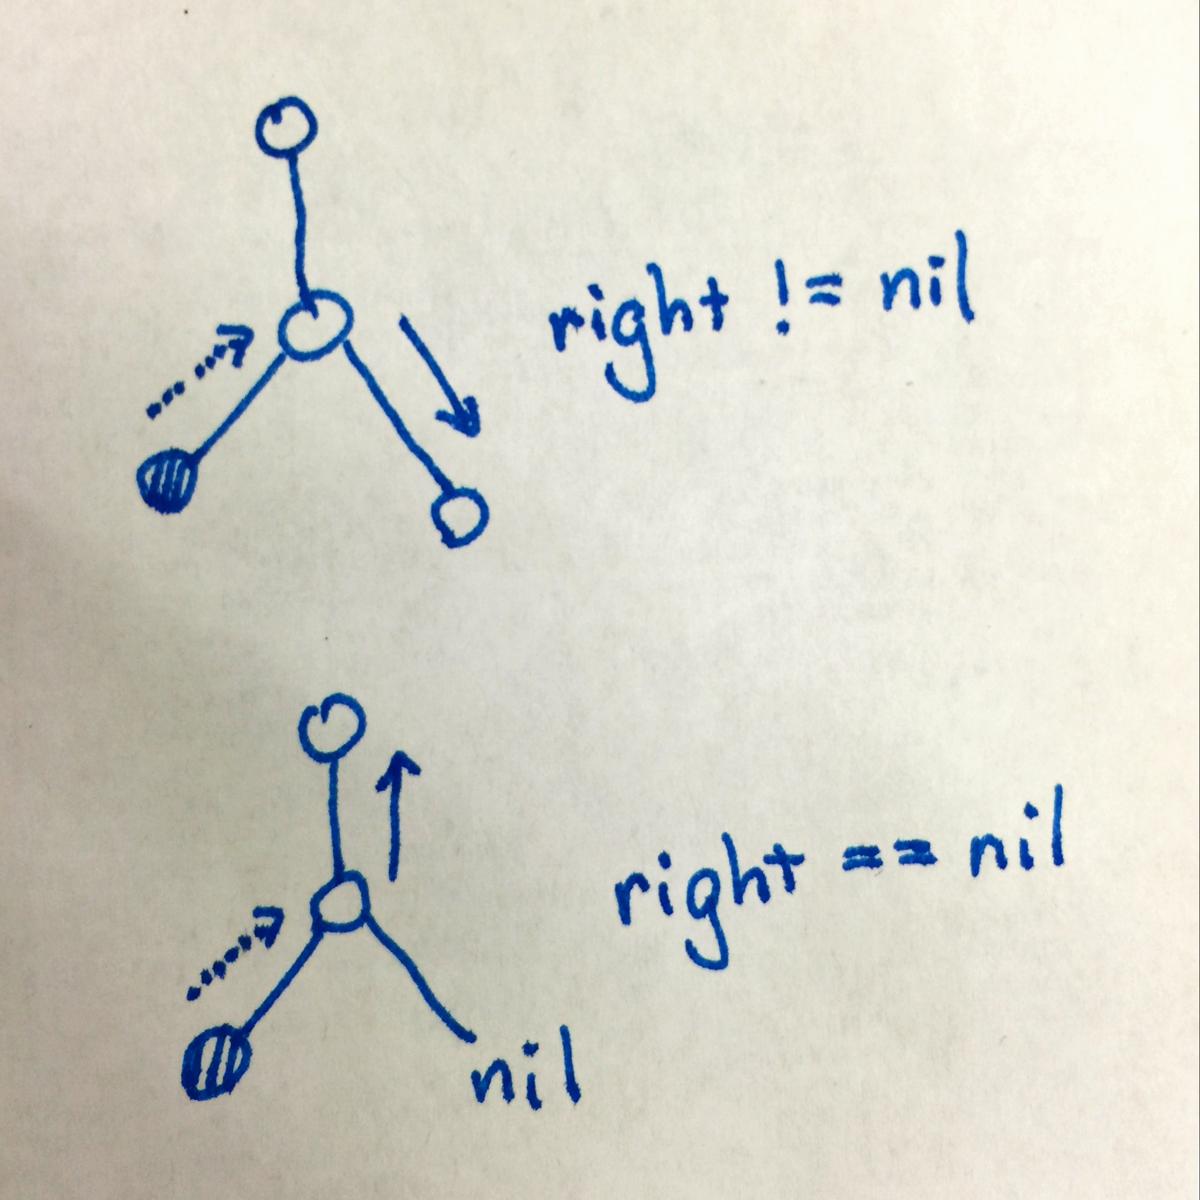 right != nil
right == nil
nil